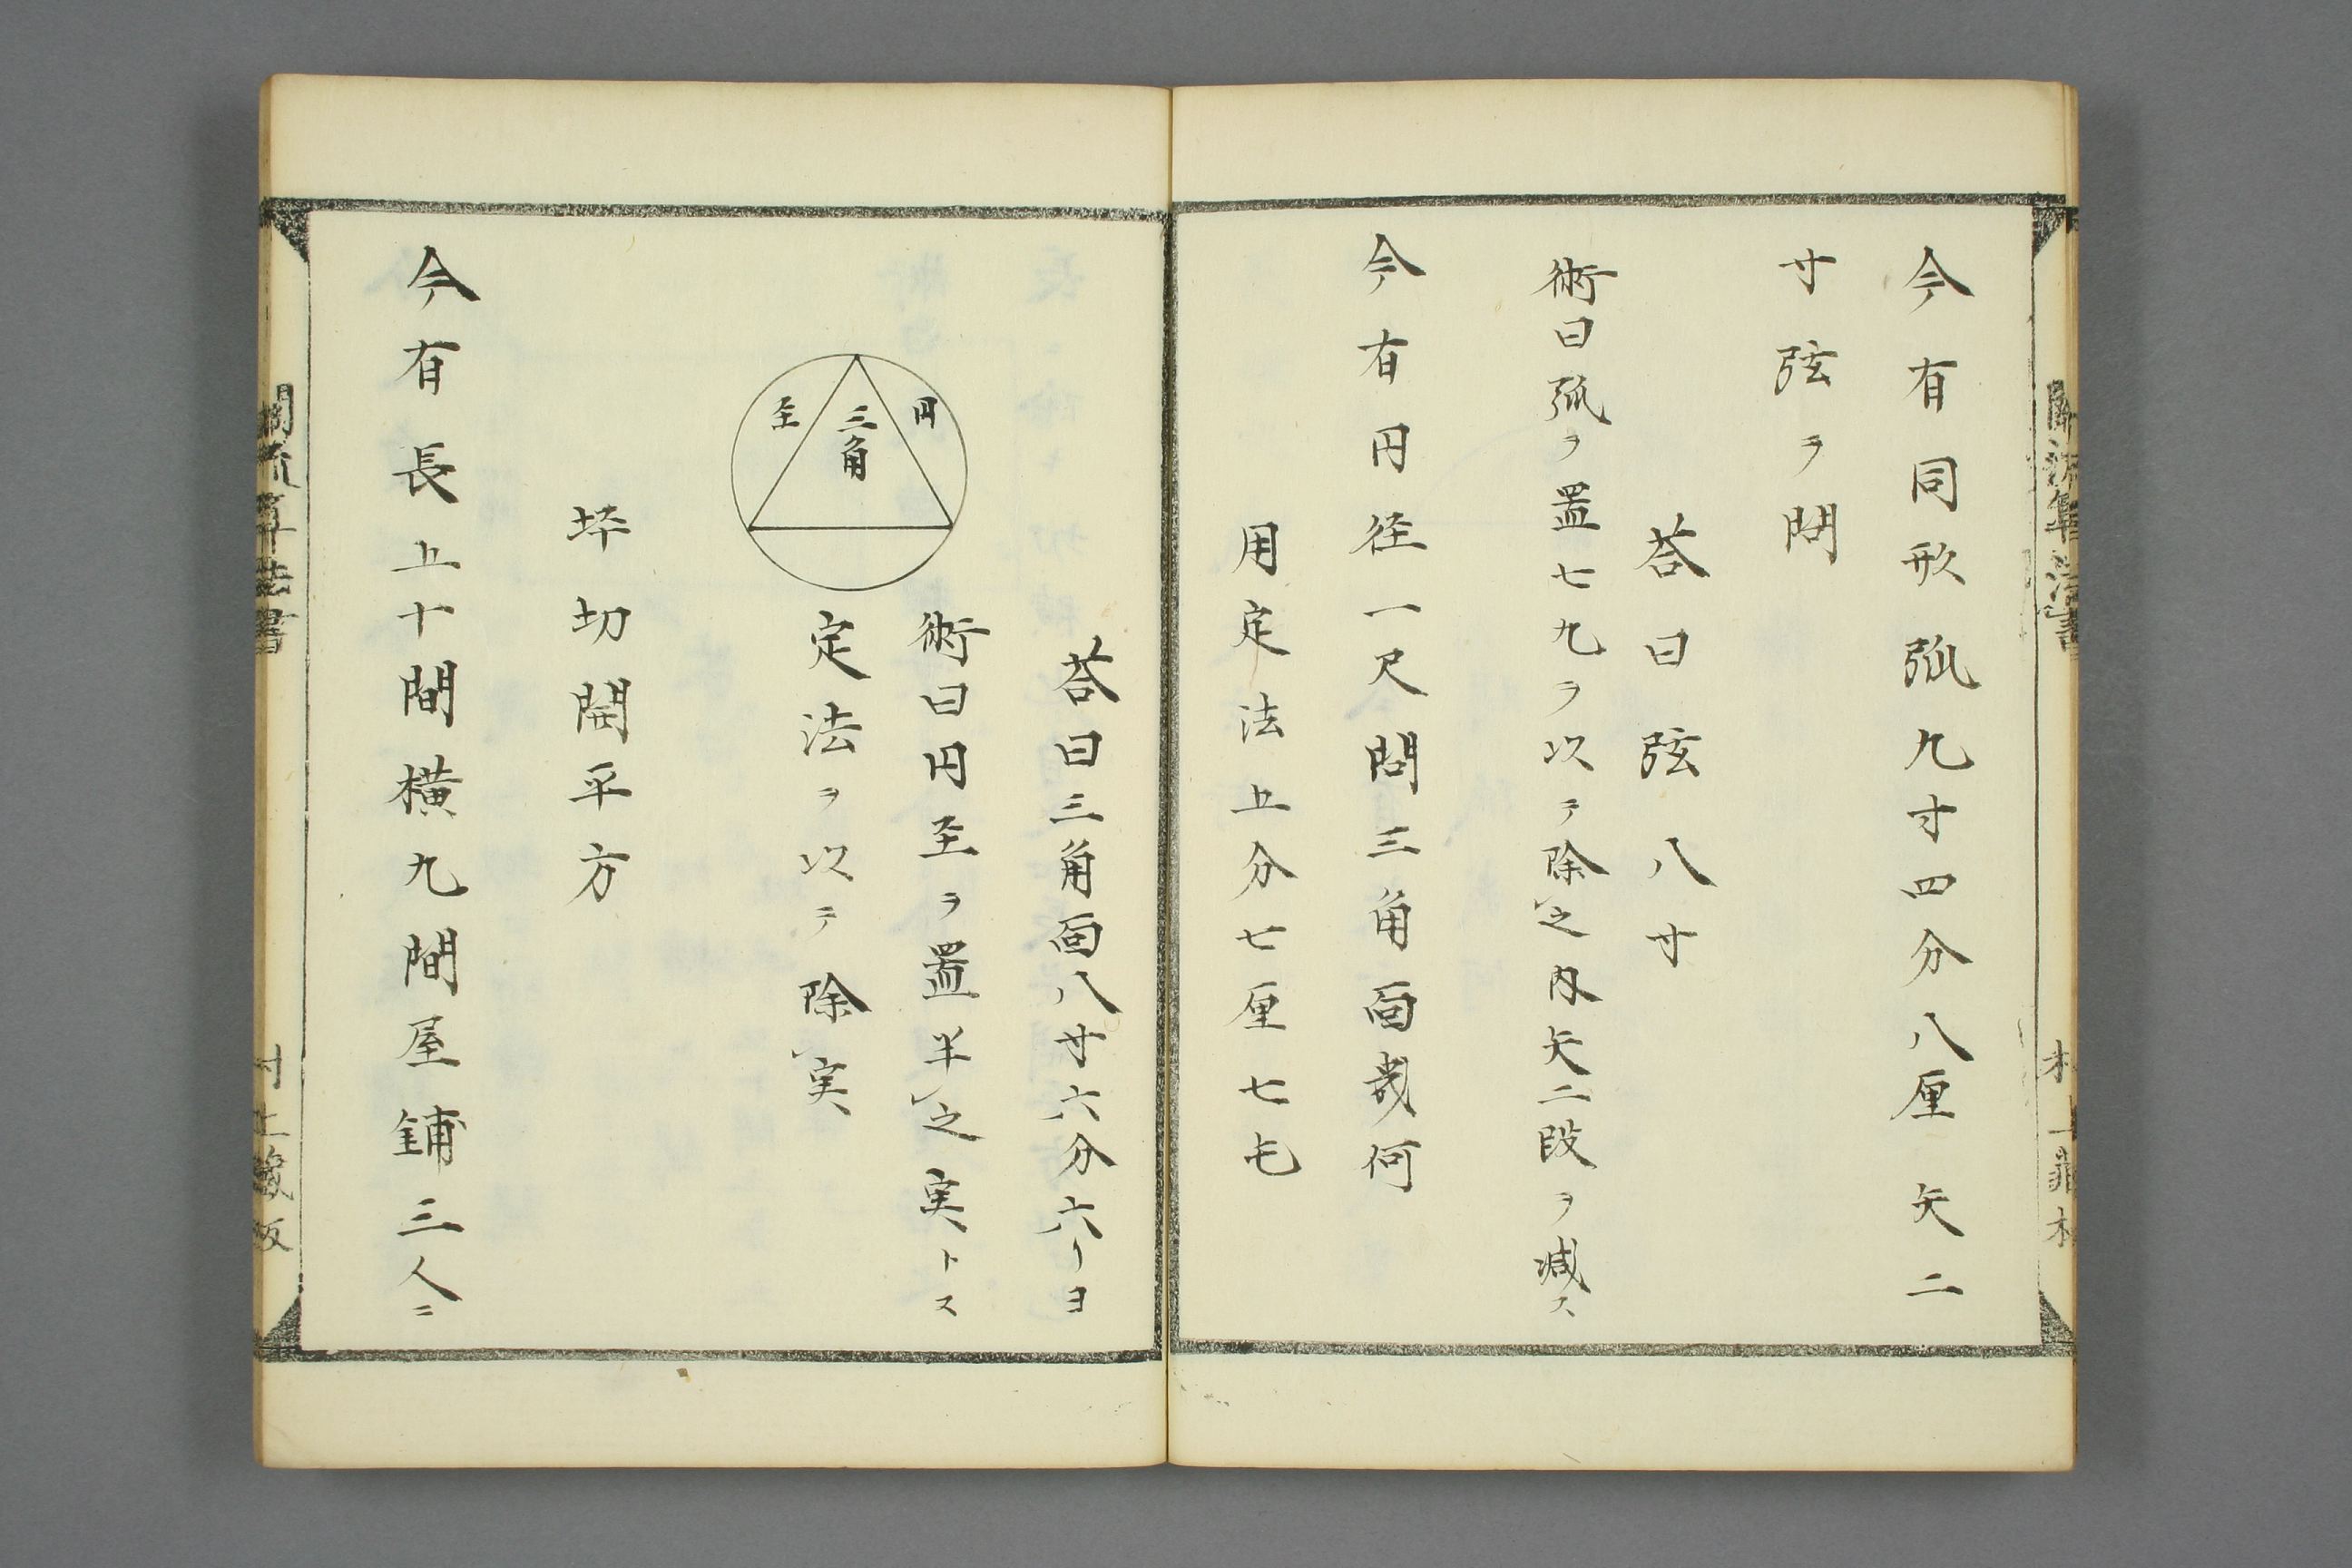 今有同形弧九寸四分八厘矢二
寸弦ヲ問
荅曰弦八寸
術曰弧ヲ置七九ヲ以テ除之内矢二段ヲ減ス
今有円径一尺問三角面幾何
用定法五分七厘七毛
荅曰三角面八寸六分六
術曰円至ヲ置半之実トス
定法ヲ以テ除実
円
三角
至
坪切開平方
今有長五十間横九間屋鋪三人ニ
関流算法書